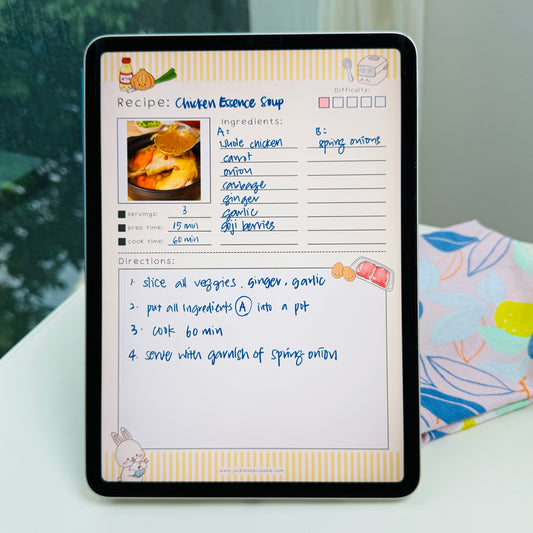 Recipe: Chicken Essence Soup
Difficulty:
Ingredients:
A: B:
whole chicken spring onions
carrot
onion
cabbage
ginger
garlic
goji berries
servings: 3
prep time: 15 min
cook time: 60 min
Directions:
1. slice all veggies, ginger, garlic
2. put all ingredients A into a pot
3. cook 60 min
4. serve with garnish of spring onion